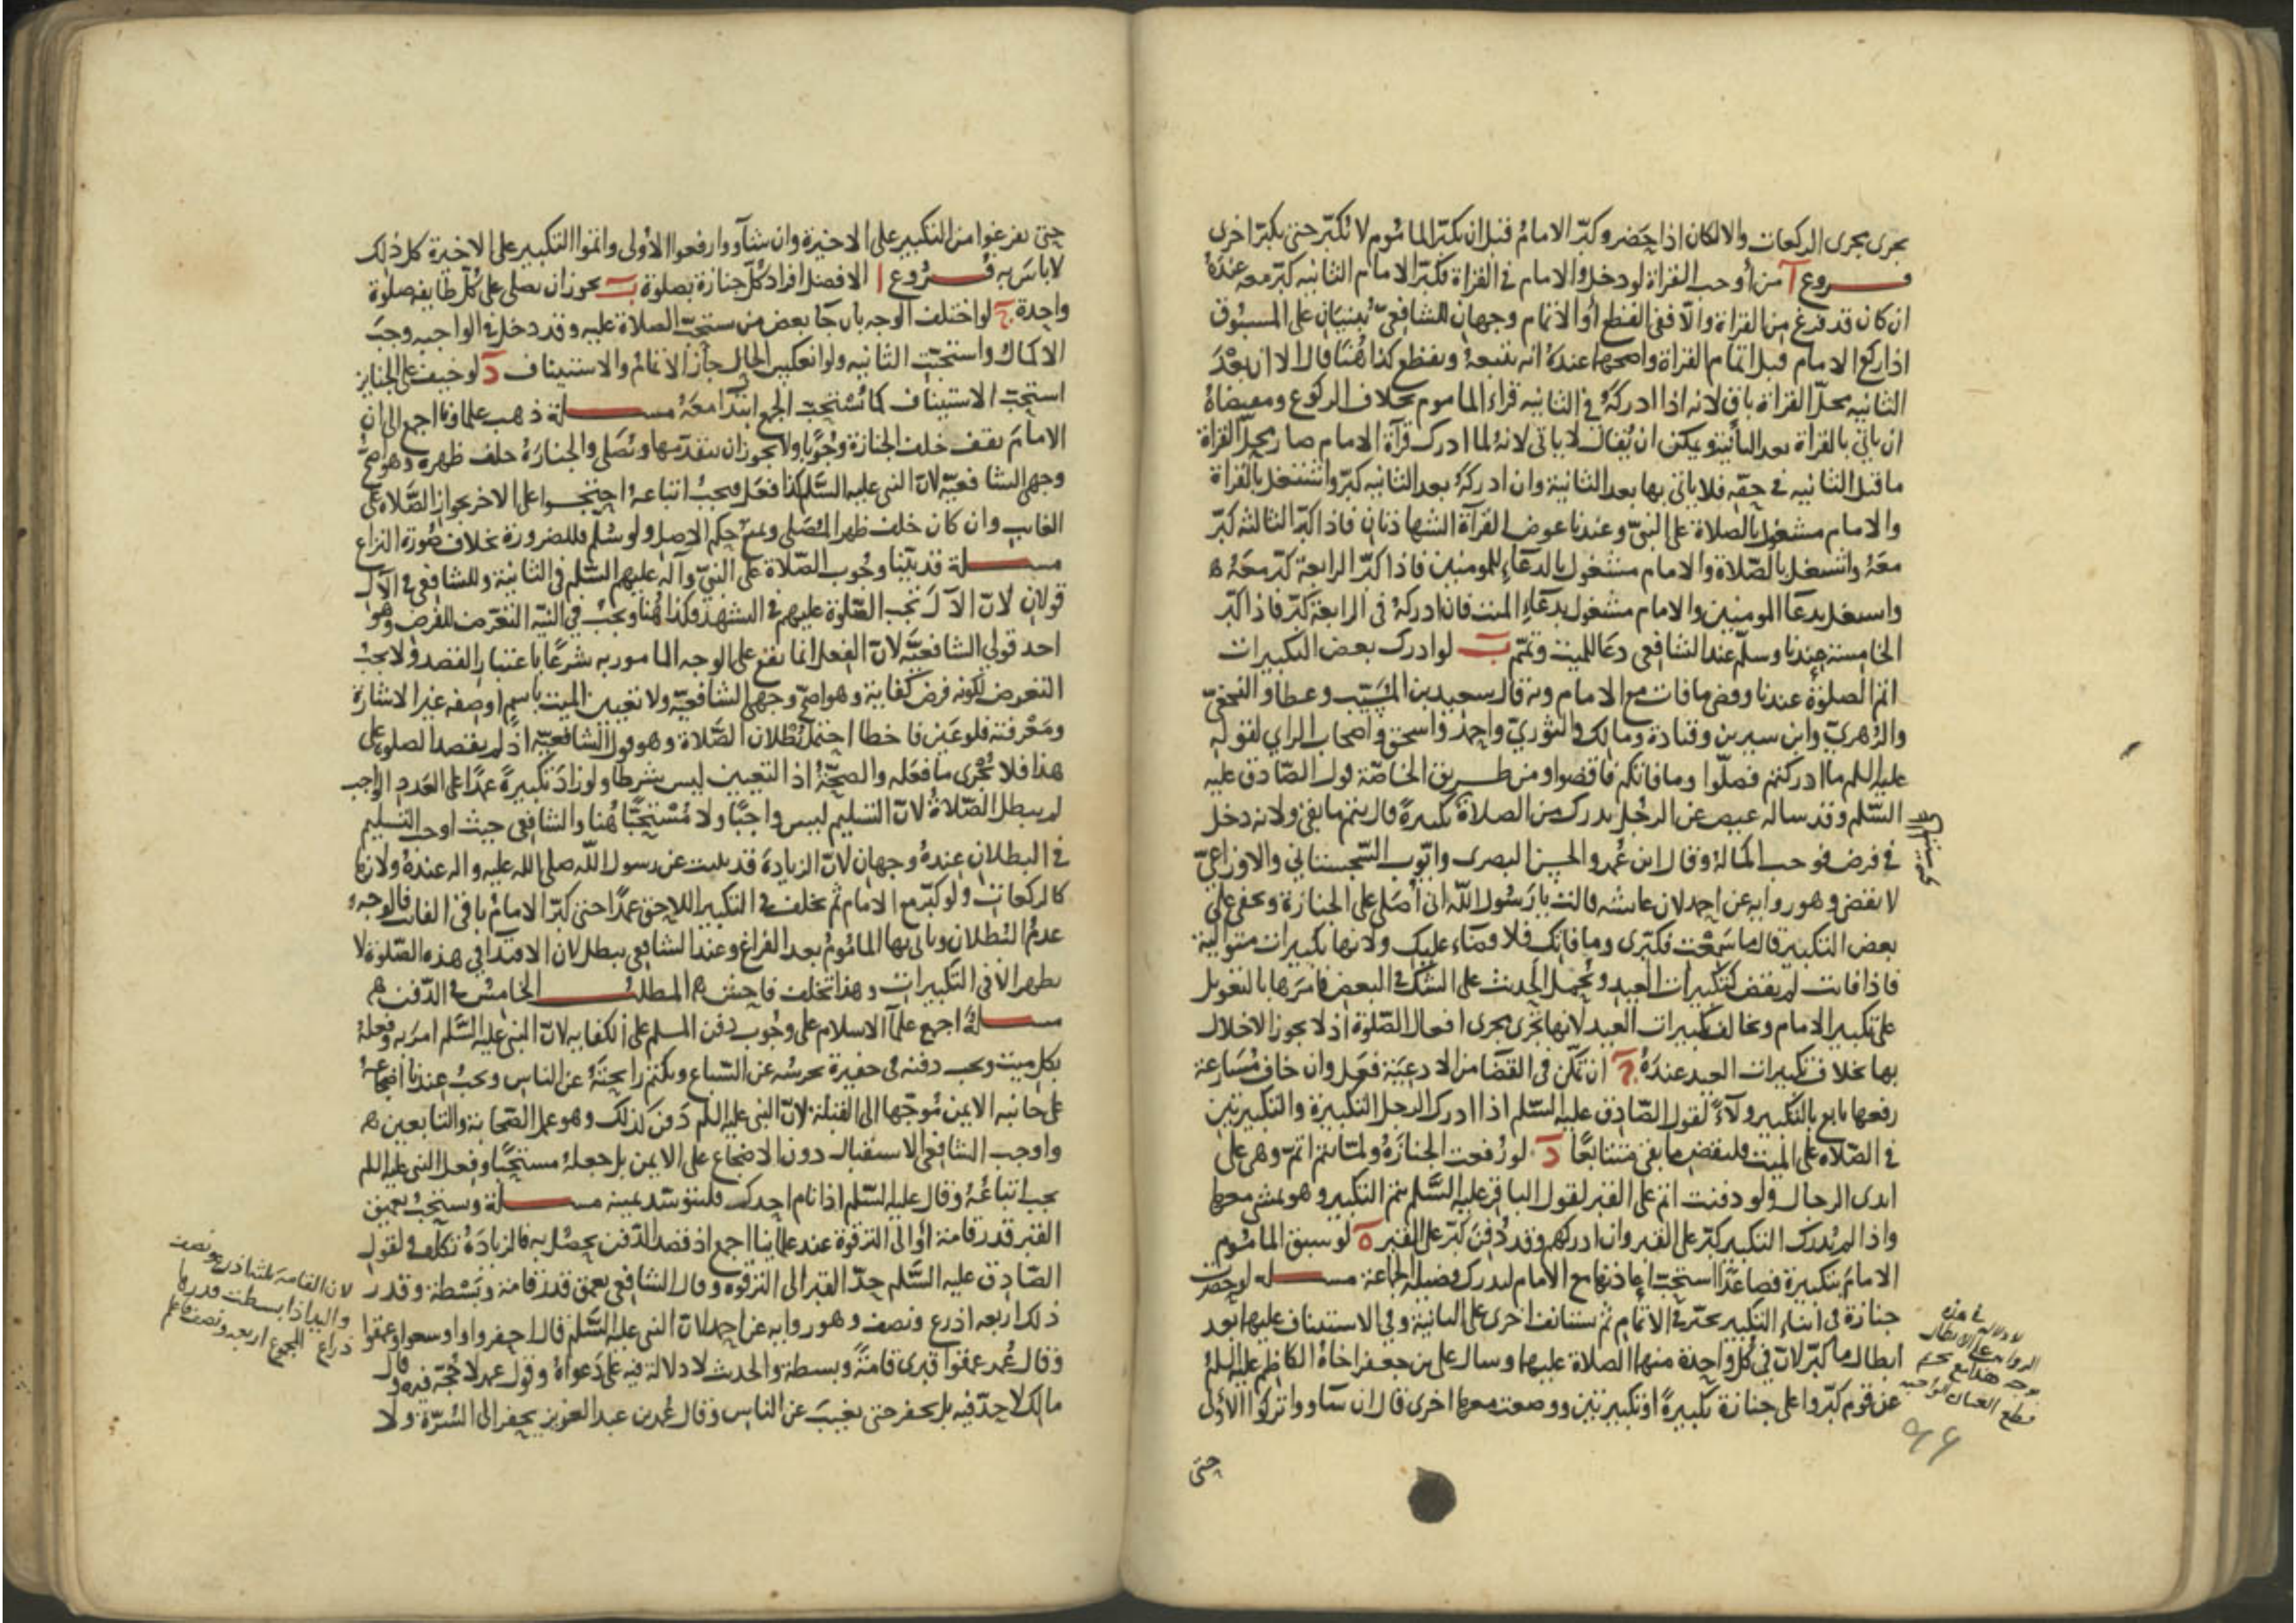 يجرى مجرى الركعات والا لكان اذا حضر وكبّر الامام قبل ان يكبّر الماموم لا يكبّر حتى يكبّر اخرى
فروع آ من أوجب القراة لو دخل والامام في القراة فكبّر الامام الثانيه كبّر معه عنده
ان كان قد فرغ من القراة والّا ففى القطع أو الاتمام وجهان للشافعىّ يُبنيَان على المسبُوق
اذا ركع الامام قبل اتمام القراة واصحهما عندهُ انه يتبعهُ ويقطع كذا هُنا قال الا ان بعْد
الثانيه محلّ القراة باق لانه اذا ادركهُ في الثانيه قراء الماموم بخلاف الركوع ومقتضاهُ
ان ياتي بالقراة بعد الثانية ويمكن ان يُقال لا ياتي لانهُ لما ادرك قرآة الامام صار محلّ القراة
ما قبل الثانيه في حقّه فلا ياتى بها بعد الثانية وان ادركهُ بعد الثانيه كبّر واشتغل بالقراة
والامام مشغول بالصلاة على النبىّ وعندنا عوض القرآة الشهادتان فاذا كبّر الثالثه كبّر
معهُ واشتغل بالصّلاة والامام مشغول بالدعاء للمومنين فاذا كبّر الرابعة كبّر معَهُ ه
واشتغل بدعآ المومنين والامام مشغول بدعآءِ الميت فان ادركهُ في الرابعة كبّر فاذا كبّر
الخامسة عندنا وسلّم عند الشافعي دعا للميت وتمّم ب لو ادرك بعض التكبيرات
اتمّ الصلوة عندنا وقضى ما فات مع الامام وبه قال سعيد بن المُسَيّب وعطا والنخعىّ
والزهريّ وابن سيرين وقتادة ومالك والثوريّ واحمد واسحق واصحاب الراي لقوله
عليه السلم ما ادركتم فصلّوا وما فاتكم فاقضوا ومن طريق الخاصّة قول الصّادق عليه
السّلم وقد ساله عيص عن الرجُل يدرك من الصلاة تكبيرةً قال يتم ما بقى ولانه دخل
في فرض فوجب اكماله وقال ابن عُمر والحسن البصرى وايّوب السّجستاني والاوزاعيّ
لا يقضى وهو روايه عن احمد لان عايشه قالت يا رَسُول اللّه انى أُصَلى على الجنازة ويخفى عليّ
بعض التكبير قال ما سَمِعْت فكبّرى وما فاتك فلا قضاء عليك ولانها تكبيرات متوالية
فاذا فاتت لم يقض كتكبيرات العيد ويُحمل الحديث على الشكّ في البعض فامرَها بالتعويل
على تكبير الامام ويخالف تكبيرات العيد لانها تجرى مجرى افعال الصّلوة اذ لا يجوز الاخلال
بها بخلاف تكبيرات العيد عندهُ ج ان تمكّن في القضا من الادعيَة فعَل وان خاف مُسَارعة
رفعها تابع بالتكبير ولآءً لقول الصّادق عليه السّلم اذا ادرك الرجل التكبيرة والتكبيرتين
في الصّلاه على الميت فليقض ما بقى متتابعًا د لو رُفعت الجنازةُ ولمّا يتمّ اتمّ وهى على
ايدى الرجال ولو دفنت اتم على القبر لقول الباقر عليه السّلم يتمّ التكبير وهو يمشى معها
واذا لم يُدرك التكبير كبّر على القبر وان ادركهم وقد دُفن كبّر على القبر ه لو سبق الماموم
الامامَ بتكبيرة فصاعدًا استحبّ اعادتها مع الامام ليدرك فضيلة الجماعة مسـلة لو حضرت
جنازة في اثناء التكبير تخيّر في الاتمام ثم يستانف اخرى على الثانية وفي الاستيناف عليهما بعد
ابطال ما كبّر لانّ في كُلّ واحدة منهما الصلاة عليهما وسال على بن جعفر اخاهُ الكاظم عليه السلمُ
عن قوم كبّروا على جنازة تكبيرةً او تكبيرتين ووضعت معها اخرى قال ان شآوا تركوا الاولى
حتى
لا دلالة في هذه
الرواية على الابطال
قطع العبادة الواجبه
حتى يفرغوا من التكبير على الاخيرة وان شآوا رفعوا الاولى واتمّوا التكبير على الاخيرة كل ذلك
لا باسَ به فروع ا الافضل افراد كلّ جنازة بصلوة ب يجوز ان يصلى على كُلّ طايفة صلوة
واحدة ج لو اختلف الوجه بان كان بعض من يستحبّ الصلاة عليه وقد دخل في الواجبه وجبَ
الاكمال واستحبّت الثانيه ولو انعكس الحال جاز الاتمام والاستيناف د لو خيف على الجنايز
استحبّ الاستيناف كما يُسْتحبّ الجمع ابتدآ معهُ مسـلة ذهب علماونا اجمع الى ان
الامامَ يقف خلف الجنازة وجُوبًا ولا يجوز ان يتقدّمها ويُصَلى والجنازةُ خلف ظهره وهو اصحّ
وجهى الشافعيّه لانّ النبى عليه السّلم كذا فعَل فيجبُ اتباعهُ احتجّـوا على الاخر بجواز الصّلاة على
الغايب وان كان خلف ظهر المُصَلى ويمنع حكم الاصل ولو سُلّم فللضرورة بخلاف صُورة النزاع
مسـلة قد بيّنا وجُوب الصّلاة على النبىّ وآله عليهم السّلم في الثانيَة وللشافعي في الآل
قولان لانّ الآلَ تجب الصّلوة عليهم في التشهد فكذا هُنا ويجبُ في النيّة التعرّض للفرض وهُو
احد قولي الشافعيّة لانّ الفعل انما يقع على الوجه المامور به شرعًا باعتبار القصد ولا يجبُ
التعرض لكونه فرض كفاية وهو اصحّ وجهى الشافعيّة ولا تعيين الميت باسم او صفه غير الاشارة
ومَعْرفته فلو عيّن فاخطا احتمل بُطْلان الصّلاة وهو قول الشافعيّه اذ لم يقصد الصلوة على
هذا فلا يُجزى ما فعَله والصحّةُ اذ التعيين ليس شرطا ولو زادَ تكبيرةً عمدًا على العَدد الواجب
لم يبطل الصّلاةُ لانّ التسليم ليس واجبًا ولا مُسْتحبًّا هُنا والشافعي حيث اوجب التسليم
في البطلان عندهُ وجهان لانّ الزيادَة قد ثبتت عن رسول اللّه صلى الله عليه واله عندهُ ولانها
كالركعات ولو كبّر مع الامام ثم تخلف في التكبير اللاحق عمدًا حتى كبّر الامامُ باقى الفايت فالوجه
عدمُ البُطلان وياتى بها المامُومُ بعد الفراغ وعند الشافعى يبطل لان الاقتدا في هذه الصّلوة لا
يظهر الّا في التكبيرات وهذا تخلف فاحش ه المطلب الخامسُ في الدّفن ه
مسـلةٌ اجمع علمآ الاسلام على وجُوب دفن المسلم على الكفايه لانّ النبى عليه السّلم امرَ به وفعلهُ
بكل ميت ويجب دفنه في حفيرة تحرسُه عن السّباع وتكتم رايحتهُ عن الناس ويجبُ عندنا اضجاعهُ
على جانبه الايمن مُوجّها الى القبلة لانّ النبى عليه السلم دُفن كذلك وهو عمل الصّحابة والتابعين ه
واوجب الشافعى الاستقبال دون الاضجاع على الايمن بل جعلهُ مستحبًّا وفعل النبى عليه السلم
يجب اتباعُهُ وقال عليه السّلم اذا نام احدكم فليتوسّد يمينه مسـلة ويستحبُّ تعميق
القبر قدر قامة أو الى الترقوة عند علمآينا اجمع اذ قصد الدّفن يحصُل به فالزيادَةُ تكلّف ولقول
الصّادق عليه السّلم حدّ القبر الى الترقوه وقال الشافعى يعمق قدر قامة وبَسْطة وقدر
ذلك اربعه اذرع ونصف وهو روايه عن احمد لانّ النبى عليه السّلم قال احفروا واوسعوا وعمّقوا
وقال عُمر عمّقوا قبرى قامةً وبسطة والحديث لا دلالة فيه على دَعواهُ وقول عمر لا حُجّة فيه وقال
مالك لا حدّ فيه بل يحفر حتى يغيبَ عن الناس وقال عُمر بن عبد العزيز يحفر الى السُرّة ولا
لان القامة ثلثة اذرع ونصف
واليد اذا بسطت قدرها
ذراع المجموع اربعه ونصف فاعلم